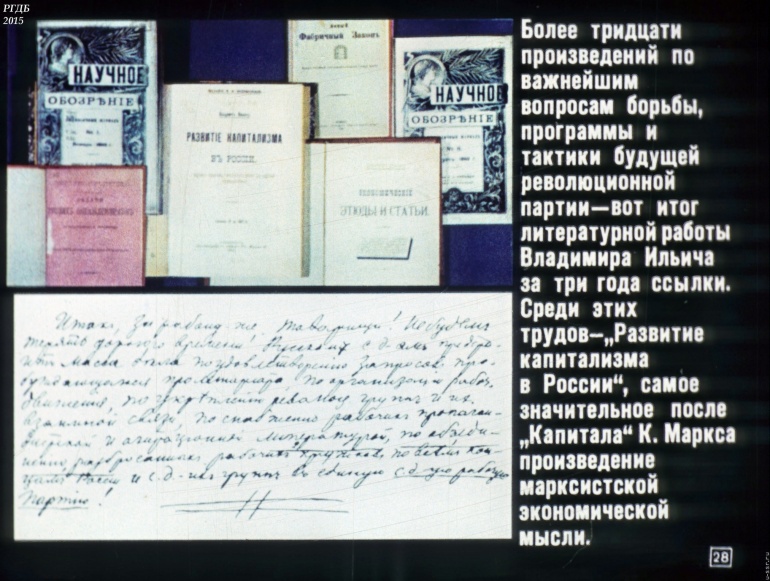 РГДБ
2015
НАУЧНОЕ
ОБОЗРѢНІЕ
Фабричный Законъ
НАУЧНО
ОБОЗРѢНІЕ
РАЗВИТІЕ КАПИТАЛИЗМА
ВЪ РОССІИ.
ЭКОНОМИЧЕСКІЕ
ЭТЮДЫ И СТАТЬИ.
Итак, за работу же, товарищи! Не будем
терять дорогого времени! Русским с.-д. -ам предсто-
ит масса дела по удовлетворению запросов про-
буждающегося пролетариата, по организации рабоч.
движения, по укреплению револ. групп и их
взаимной связи, по снабжению рабочих пропаган-
дистской и агитационной литературой, по объеди-
нению разбросанных рабочих кружков по всем кон-
цам России и с.-д. -их групп в единую с.-д. -ую рабочую
партию!
Более тридцати
произведений по
важнейшим
вопросам борьбы,
программы и
тактики будущей
революционной
партии—вот итог
литературной работы
Владимира Ильича
за три года ссылки.
Среди этих
трудов—„Развитие
капитализма
в России“, самое
значительное после
„Капитала“ К. Маркса
произведение
марксистской
экономической
мысли.
28